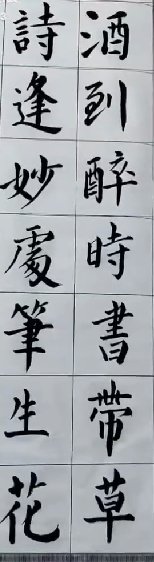 酒到醉時書帶草
詩逢妙處筆生花